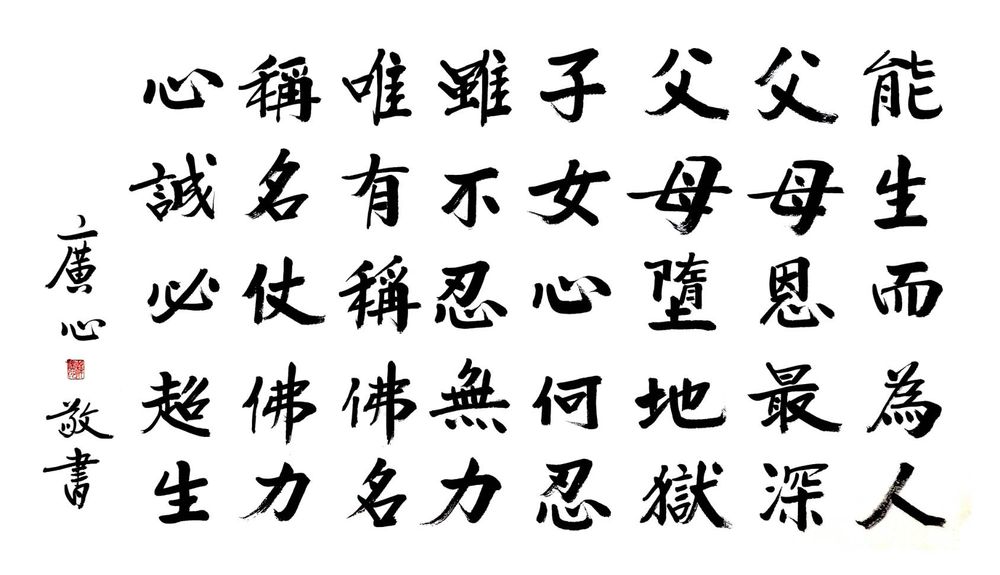 能生而為人
父母恩最深
父母墮地獄
子女心何忍
雖不忍無力
唯有稱佛名
稱名仗佛力
心誠必超生
廣心敬書